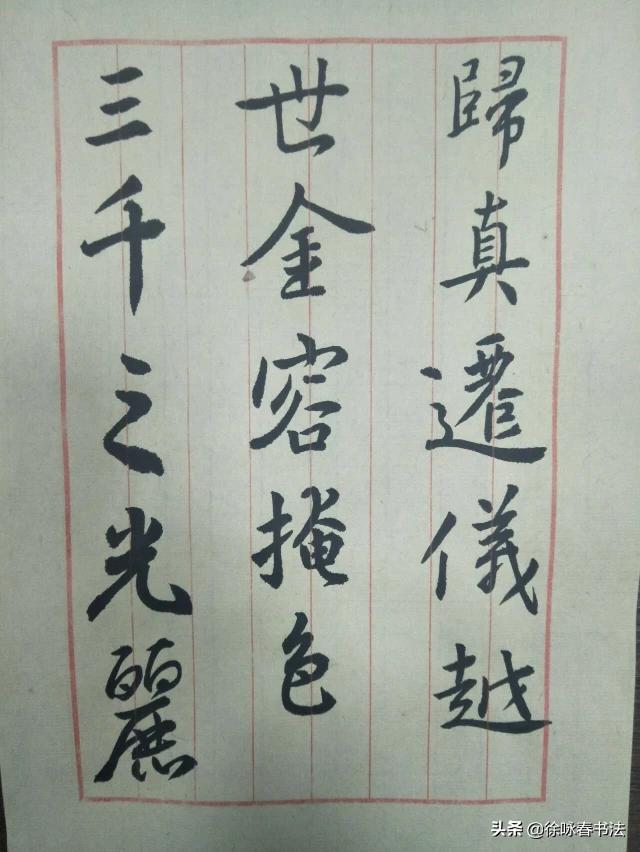 歸真遷儀越
世金容掩色
三千之光麗
头条 @徐咏春书法